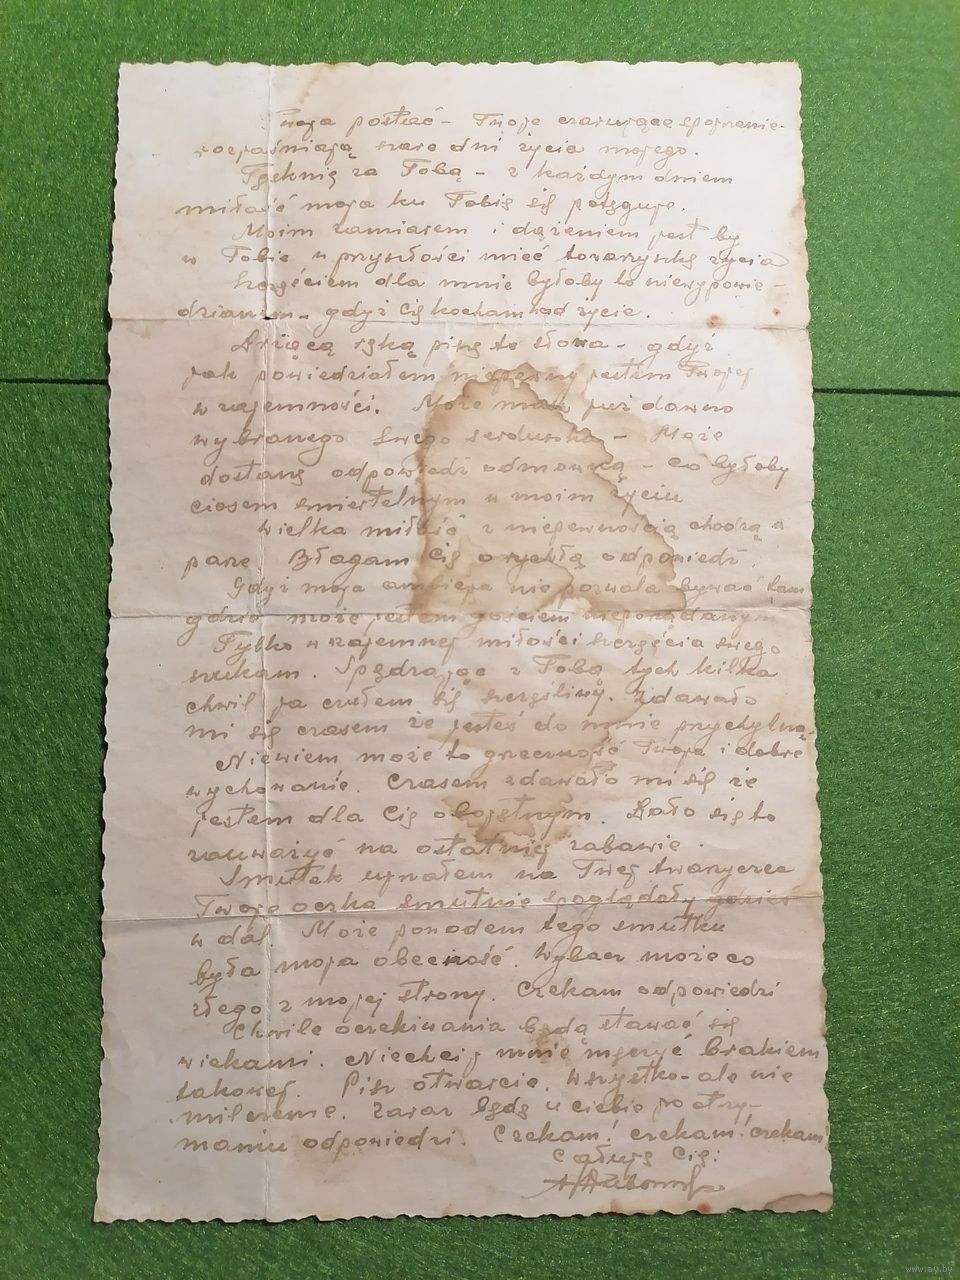 Twoja postać - Twoje czarujące spojrzenie -
rozjaśniają szare dni życia mojego.
Tęsknię za Tobą - z każdym dniem
miłość moja ku Tobie się potęguje.
Moim zamiarem i dążeniem jest by
w Tobie w przyszłości mieć towarzyszkę życia
Szczęściem dla mnie byłoby to niewypowie-
dzianem - gdyż Cię kocham nad życie.
Drżącą ręką piszę te słowa - gdyż
jak powiedziałem niepewny jestem Twojej
wzajemności. Może masz już dawno
wybranego swego serduszka - Może
dostanę odpowiedź odmowną - co byłoby
ciosem śmiertelnym w moim życiu
Wielka miłość z niepewnością chodzą w
parze Błagam Cię o rychłą odpowiedź.
Gdyż moja ambicja nie pozwala bywać tam
gdzie może jestem gościem niepożądanym
Tylko w wzajemnej miłości szczęścia swego
szukam. Spędzając z Tobą tych kilka
chwil ja czułem się szczęśliwy. Zdawało
mi się czasem że jesteś do mnie przychylną.
Niewiem może to grzeczność Twoja i dobre
wychowanie. Czasem zdawało mi się że
jestem dla Cię obojętnym. Dało się to
zauważyć na ostatniej zabawie.
Smutek ujrzałem na Twej twarzyczce
Twoje oczka smutnie spoglądały gdzieś
w dal. Może powodem tego smutku
była moja obecność. Wybacz możeco
złego z mojej strony. Czekam odpowiedzi
Chwile oczekiwania będą stawać się
wiekami. Niechciej mnie męczyć brakiem
takowej. Pisz otwarcie. Wszystko - ale nie
milczenie. Zaraz będę u ciebie po otrzy-
maniu odpowiedzi. Czekam! czekam! czekam
Całuję Cię:
www.ay.by